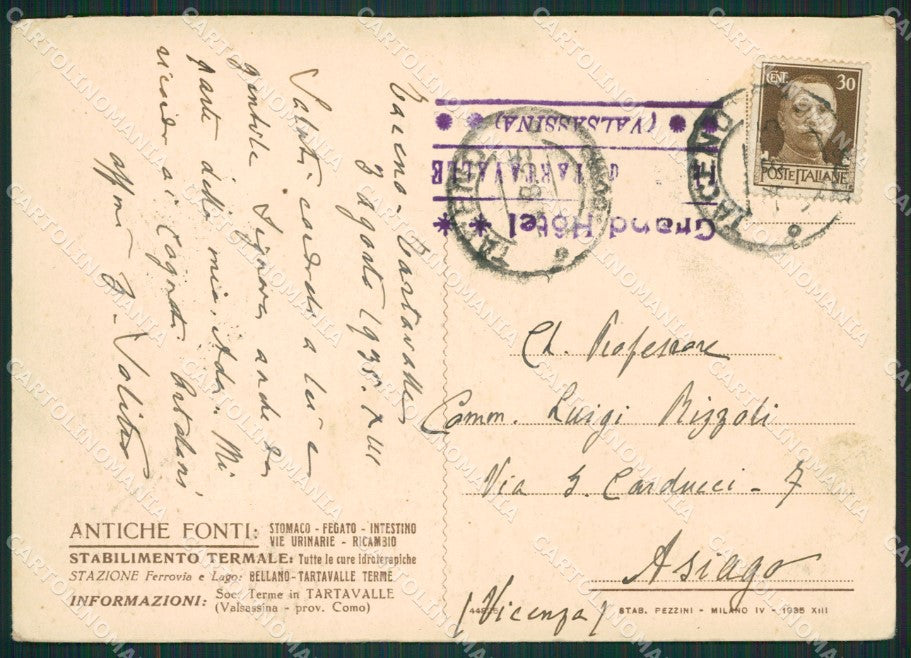 Taceno - Tartavalle
3 agosto 1935. XIII
Saluti cordiali a lei e
gentile Signora anche da
parte della mia, Ada. Mi
ricordo ai Cognati
affmo
ANTICHE FONTI: STOMACO - FEGATO - INTESTINO
VIE URINARIE - RICAMBIO
STABILIMENTO TERMALE: Tutte le cure idroterapiche
STAZIONE Ferrovia e Lago: BELLANO-TARTAVALLE TERME
INFORMAZIONI: Soc. Terme in TARTAVALLE
(Valsassina - prov. Como)
CENT. 30
POSTE ITALIANE
TACENO
Grand Hôtel
TARTAVALLE
(VALSASSINA)
Ch. Professore
Comm. Luigi Rizzoli
Via G. Carducci - 7
Asiago
(Vicenza)
STAB. PEZZINI - MILANO IV - 1935 XIII
CARTOLINOMANIA